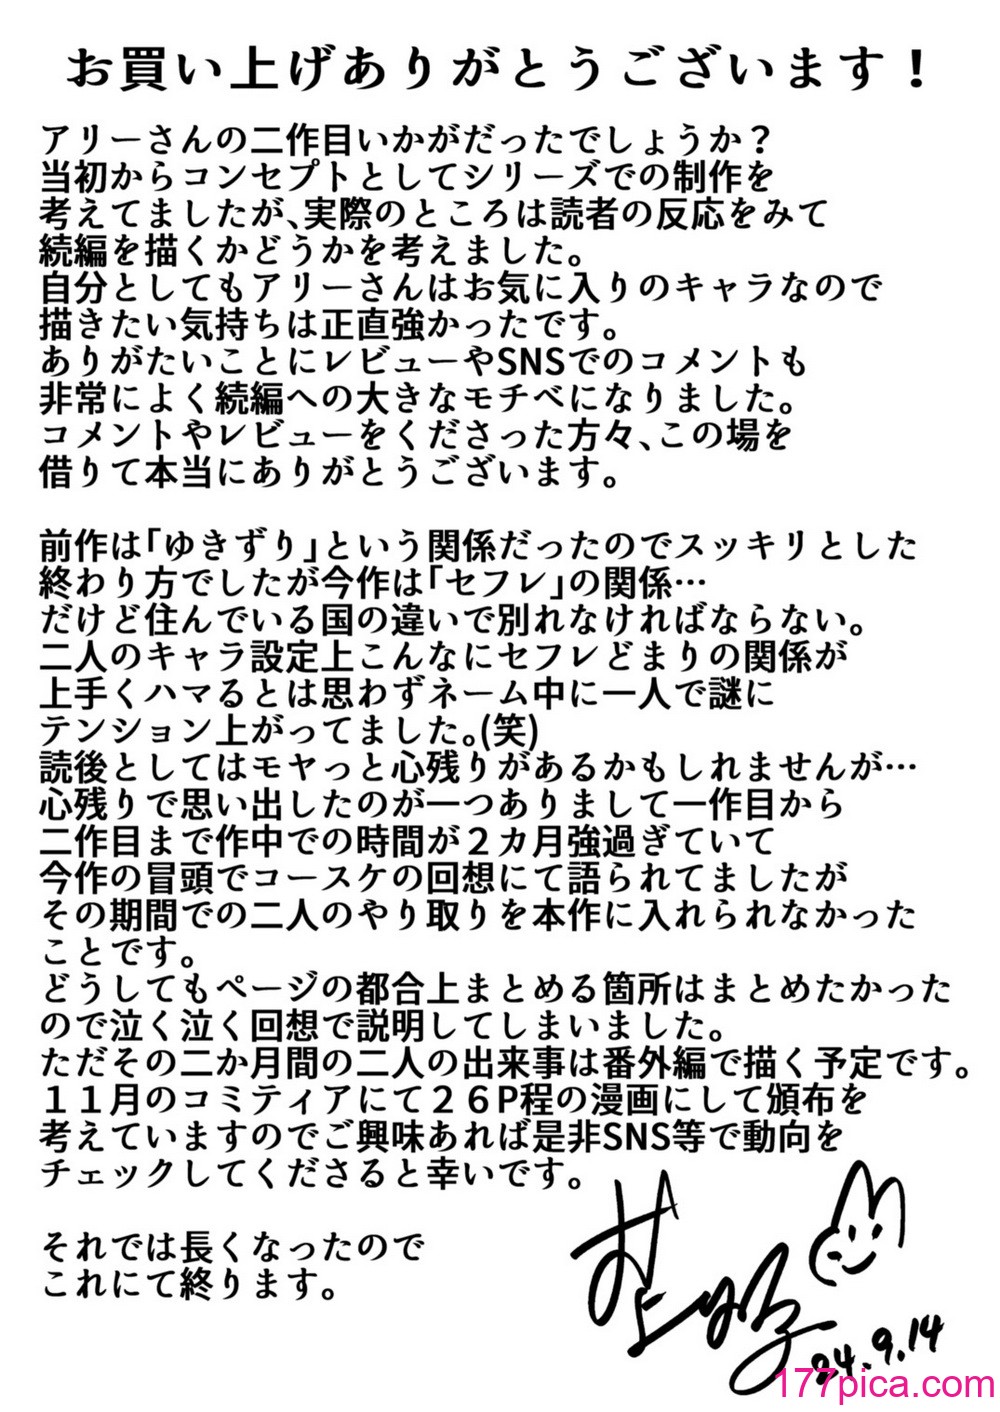 お買い上げありがとうございます！
アリーさんの二作目いかがだったでしょうか？
当初からコンセプトとしてシリーズでの制作を
考えてましたが、実際のところは読者の反応をみて
続編を描くかどうかを考えました。
自分としてもアリーさんはお気に入りのキャラなので
描きたい気持ちは正直強かったです。
ありがたいことにレビューやSNSでのコメントも
非常によく続編への大きなモチベになりました。
コメントやレビューをくださった方々、この場を
借りて本当にありがとうございます。
前作は「ゆきずり」という関係だったのでスッキリとした
終わり方でしたが今作は「セフレ」の関係…
だけど住んでいる国の違いで別れなければならない。
二人のキャラ設定上こんなにセフレどまりの関係が
上手くハマるとは思わずネーム中に一人で謎に
テンション上がってました。(笑)
読後としてはモヤっと心残りがあるかもしれませんが…
心残りで思い出したのが一つありまして一作目から
二作目まで作中での時間が２カ月強過ぎていて
今作の冒頭でコースケの回想にて語られてましたが
その期間での二人のやり取りを本作に入れられなかった
ことです。
どうしてもページの都合上まとめる箇所はまとめたかった
ので泣く泣く回想で説明してしまいました。
ただその二か月間の二人の出来事は番外編で描く予定です。
１１月のコミティアにて２６P程の漫画にして頒布を
考えていますのでご興味あれば是非SNS等で動向を
チェックしてくださると幸いです。
それでは長くなったので
これにて終ります。
24.9.14
177pica.com